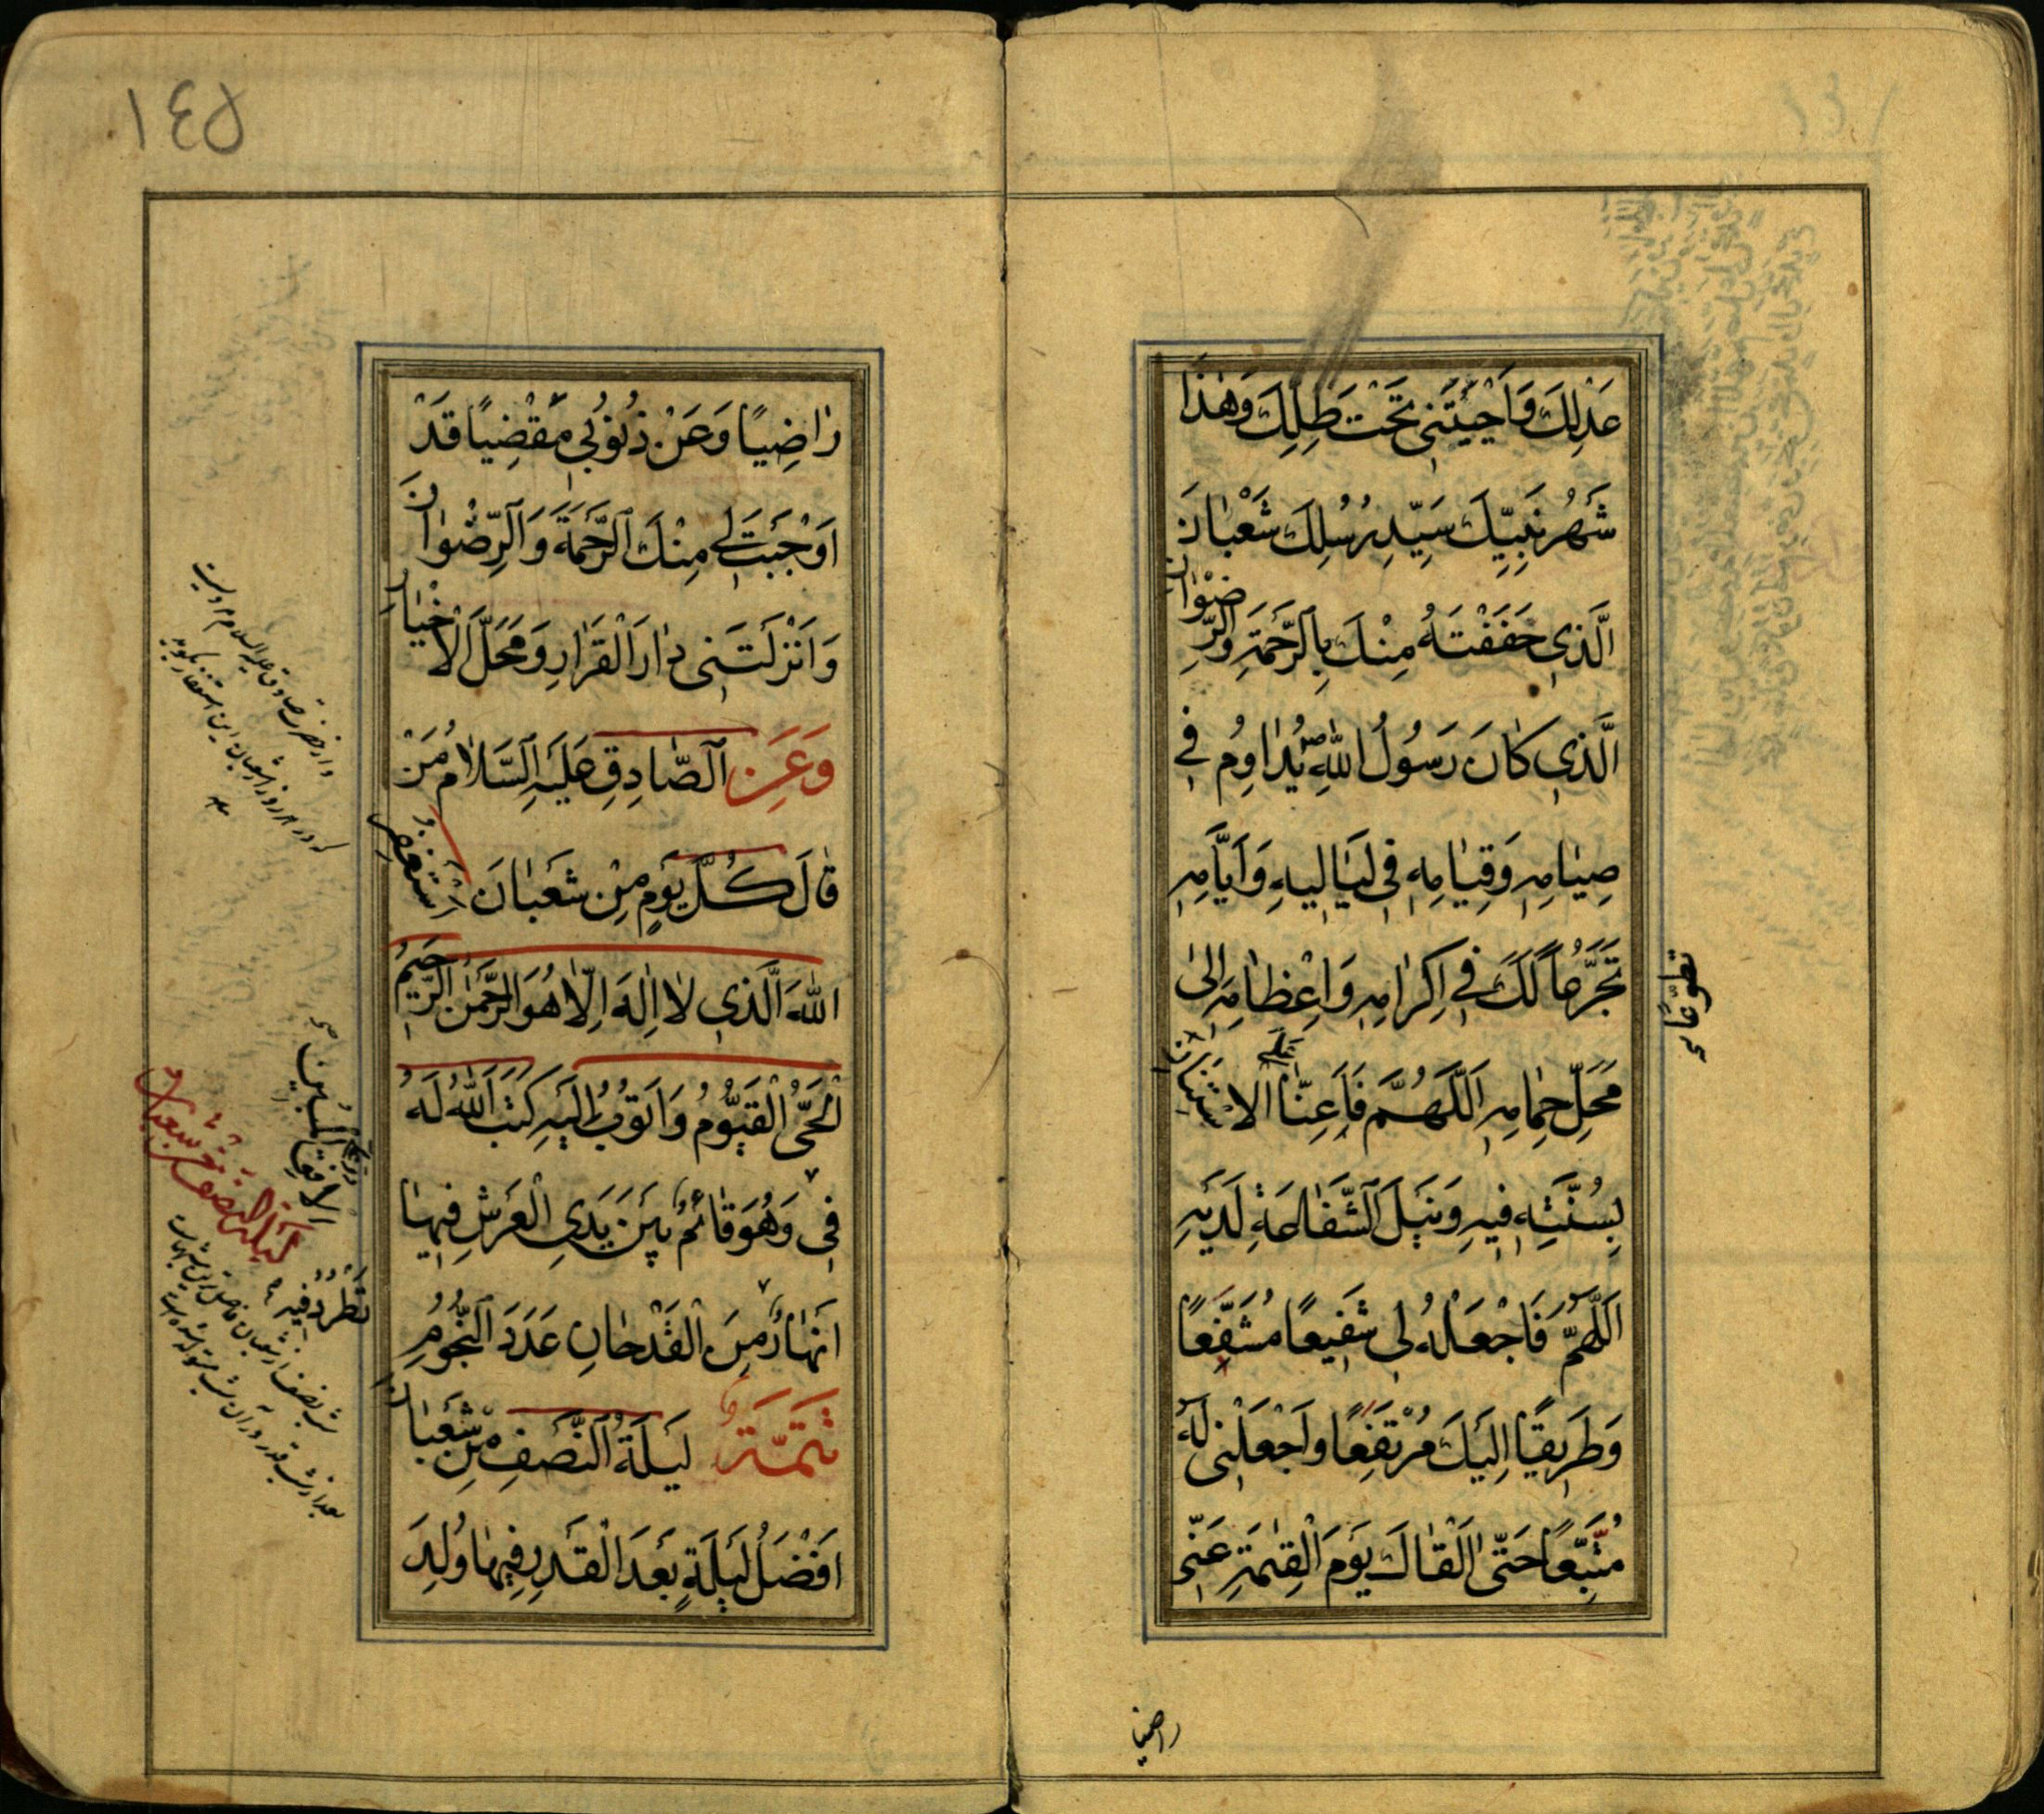 عَدْلِكَ وَاَحْيَيْتَنى تَحْتَ ظِلِّكَ وَهٰذَا
شَهْرُ نَبِيِّكَ سَيِّدِ رُسُلِكَ شَعْبٰانَ
الَّذِي حَفَفْتَهُ مِنْكَ بِالرَّحْمَةِ وَالرِّضْوٰانِ
الَّذِي كٰانَ رَسُولُ اللّٰهِ ص يُدٰاوِمُ فِي
صِيٰامِهِ وَقِيٰامِهِ فِى لَيٰالِيهِ وَاَيَّامِهِ
تَحَرُّمًا لَكَ فِي اِكْرٰامِهِ وَاِعْظٰامِهِ اِلىٰ
مَحَلِّ حِمٰامِهِ اَللَّهُمَّ فَاَعِنّٰا عَلَى الاِسْتِنٰانِ
بِسُنَّتِهِ فِيهِ وَنَيْلَ الشَّفٰاعَةِ لَدَيْهِ
اَللّٰهُمَّ فَاجْعَلْهُ لِى شَفِيعًا مُشَفَّعًا
وَطَرِيقًا اِلَيْكَ مُرْتَفِعًا وَاجْعَلْنِى لَهُ
مُتَّبِعًا حَتّٰى اَلْقٰاكَ يَوْمَ الْقِيٰمَةِ عَنّٖى
راضيا
١٤٥
رٰاضِيًا وَعَنْ ذُنُوبِي مَقْضِيًا قَدْ
اَوْجَبْتَ لِي مِنْكَ الرَّحْمَةَ وَالرِّضْوٰانَ
وَاَنْزَلْتَنِى دٰارَ الْقَرٰارِ وَمَحَلَّ الْاَخْيٰارِ
وَعَنِ الصّٰادِقِ عَلَيْهِ السَّلاٰمُ مَنْ
قٰالَ كُلَّ يَوْمٍ مِنْ شَعْبٰانَ اَسْتَغْفِرُ
اللّٰهَ الَّذِي لاٰ اِلٰهَ اِلّاٰ هُوَ الرَّحْمٰنُ الرَّحِيمُ
الْحَىُّ الْقَيُّومُ وَاَتُوبُ اِلَيْهِ كَتَبَ اللّٰهُ لَهُ
فِى وَهُوَ قٰائِمٌ بَيْنَ يَدَيِ الْعَرْشِ فِيهٰا
اَنْهٰارٌ مِنَ الْقَدْحٰانِ عَدَدَ النُّجُومِ
تَتِمَّةٌ لَيْلَةُ النِّصْفِ مِنْ شَعْبٰانَ
اَفْضَلُ لَيْلَةٍ بَعْدَ الْقَدْرِ فِيهٰا وُلِدَ
الافق المبين
تَطَّرِدُ فيه
ليلة النصف من شعبان